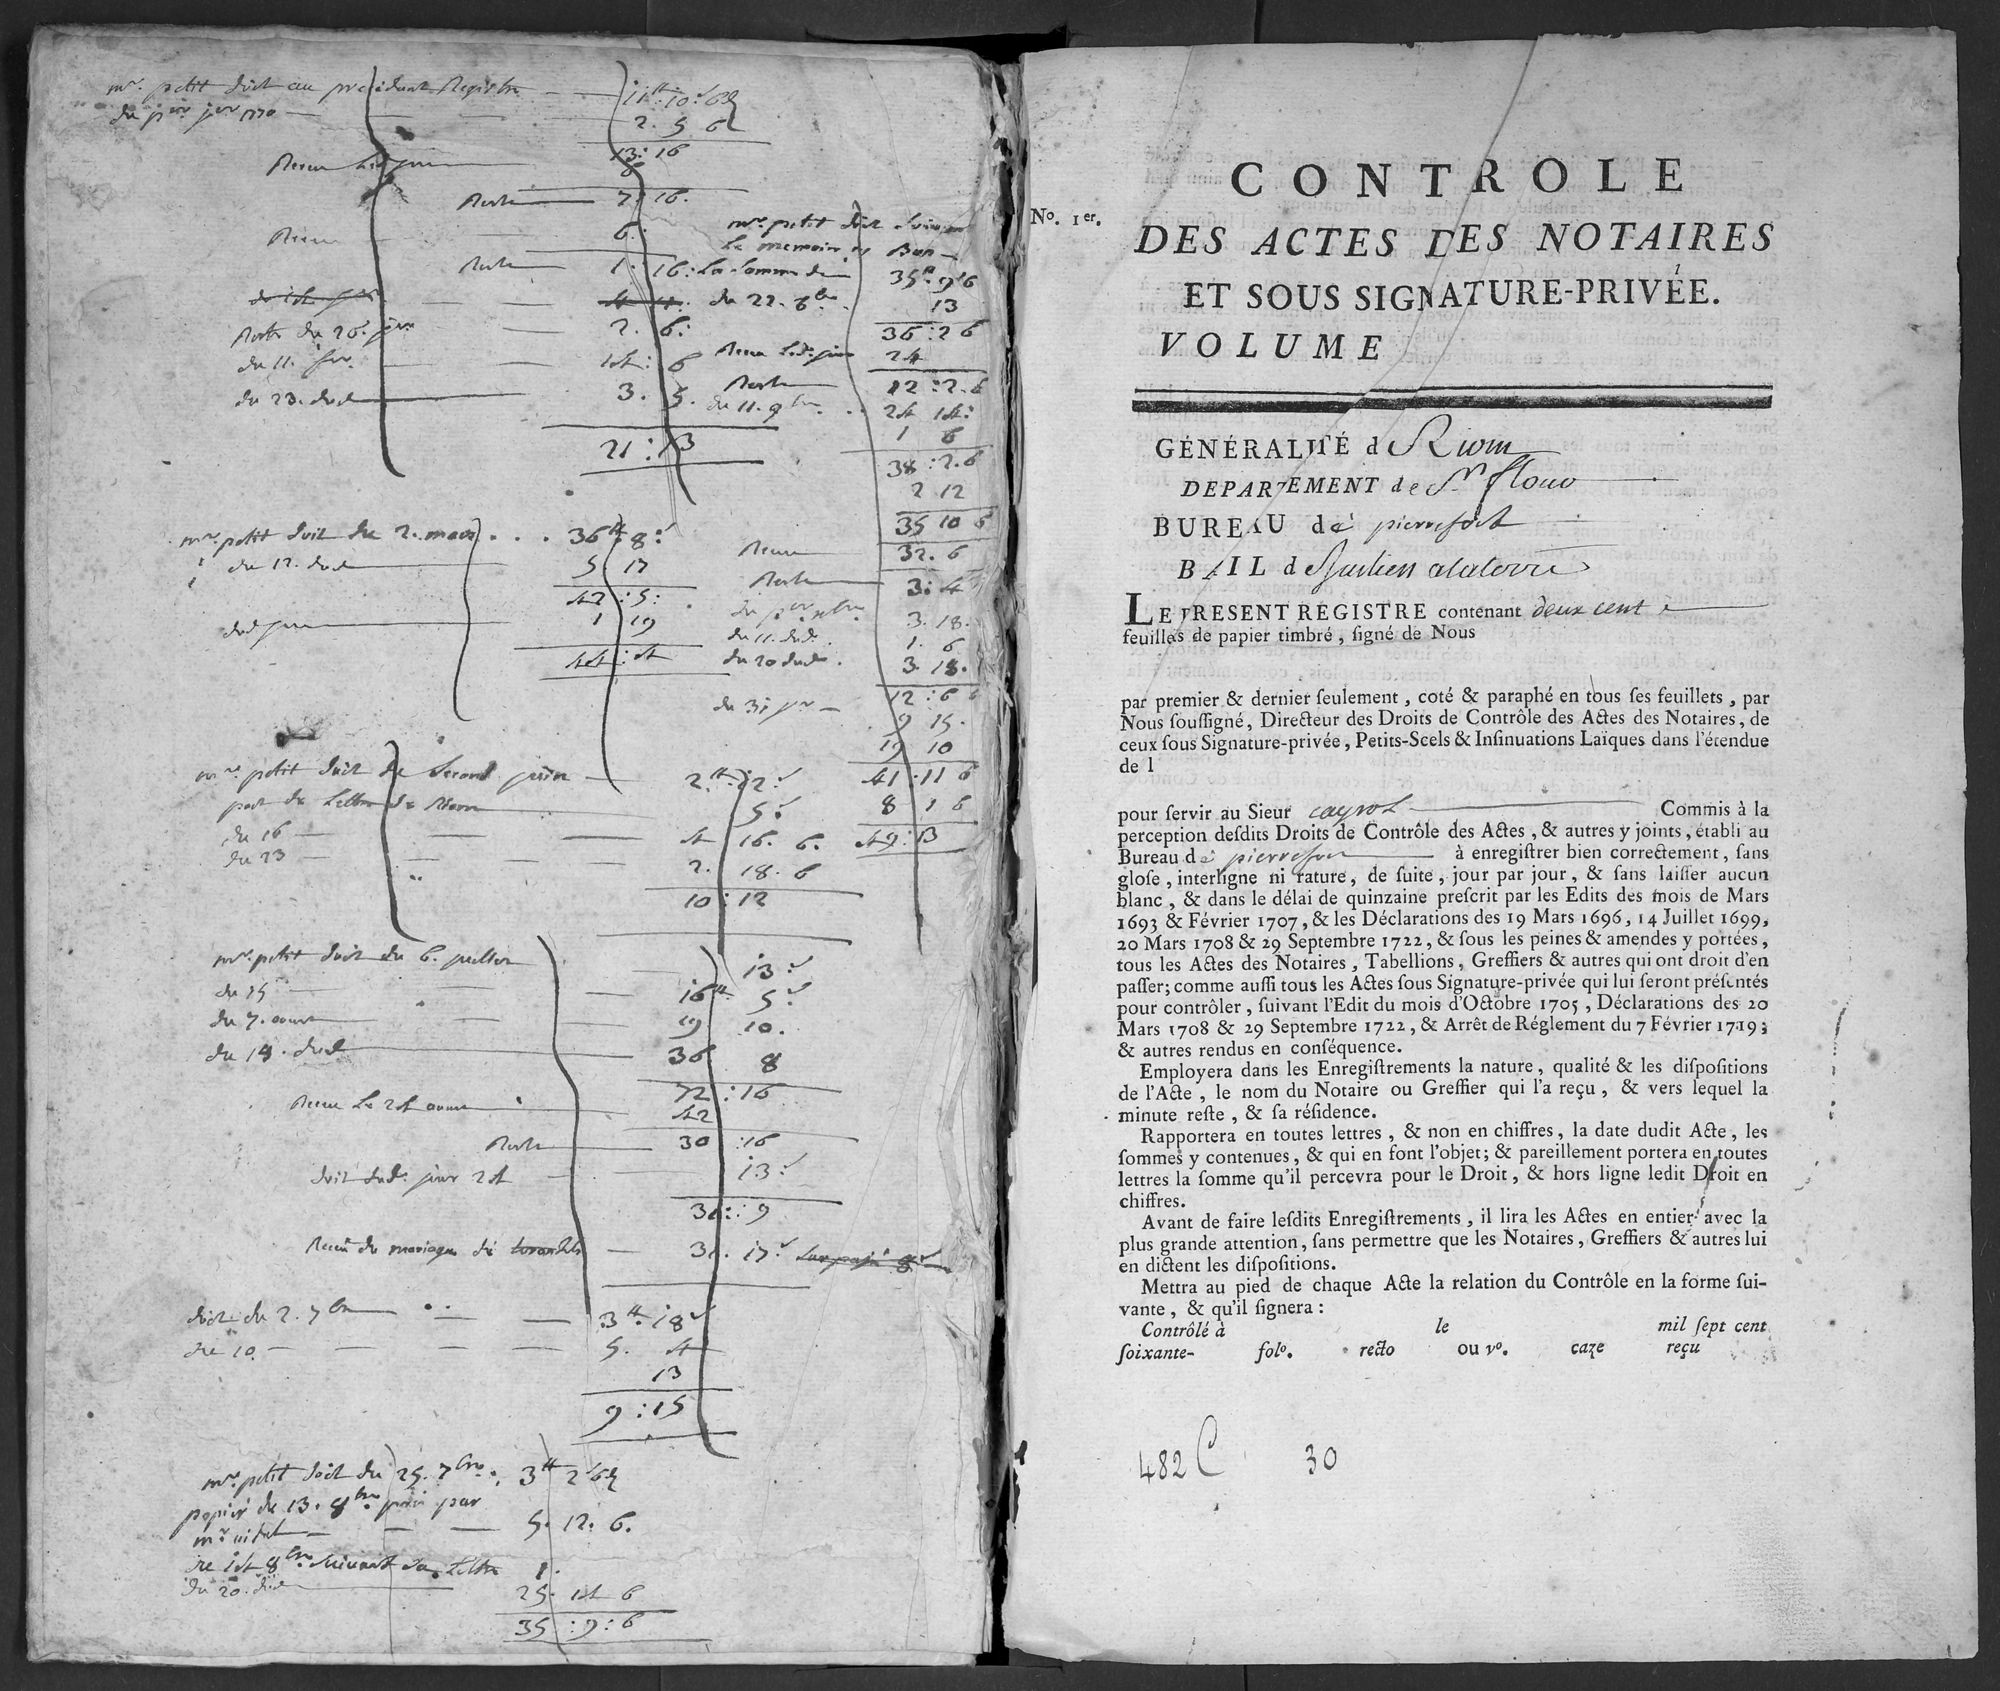 mr. petit doit au precedent Registre 11tt:10s 6d
du pier jer 1770 2. 5 6
13:16
Recu
Reste 7. 16.
Recu 6.
Reste 1. 16:
2. 6:
du 11. 14: 6
du 23. dud 3. 5.
21:13
mr. petit doit du 2. mars 36tt. 8s
du 12. dud 5 17
42:5:
1 19
44:4
mr. petit doit du second juin 2tt:12s
port de lettre de Riom 5s
du 16 4 16. 6.
du 23 2. 18. 6
10:12
mr. petit doit du 6. juillet 13s
du 25 16tt 5s
du 7. aoust 19 10.
du 18. dud 36 8
72:16
Recu le 24 aoust 42
Reste 30:16
doit dud. jour 24 13s
31::9
Recu du mariage de 31. 17s
doit du 2. 7bre 3tt. 18s
du 10. 5. 4
13
9:15
mr. petit doit du 25. 7bre. 3tt 2s 6d
papier du 13. 8bre pris par
mr vital 5. 12. 6.
de 14 8bre suivant sa lettre 1.
du 20. dud 25. 14 6
35:9:6
mr. petit doit suivant
le memoire
la somme de 35tt. 9s 6
du 22. 8bre. 13
36:2 6
Recu led. jour 24
Reste 12:2.6
du 11. 9bre. 24 14:
1 6
38:2.6
2 12
35 10 6
Recu 32. 6
Reste 3:4
3.18.
du 11. dud. 1. 6
du 20 dud. 3. 18.
12:6 6
du 31 9 15.
19 10
41:11 6
8 1 6
49:13
CONTROLE
No. 1er.
DES ACTES DES NOTAIRES
ET SOUS SIGNATURE-PRIVÉE.
VOLUME
GÉNÉRALITÉ de Riom
DEPARTEMENT de St flour
BUREAU de pierrefort
BAIL de Julien alaterre
LE PRESENT REGISTRE contenant deux cent
feuilles de papier timbré, ſigné de Nous
par premier & dernier ſeulement, coté & paraphé en tous ſes feuillets, par
Nous ſouſſigné, Directeur des Droits de Contrôle des Actes des Notaires, de
ceux ſous Signature-privée, Petits-Scels & Inſinuations Laïques dans l'étendue
de l
pour ſervir au Sieur cayrol Commis à la
perception deſdits Droits de Contrôle des Actes, & autres y joints, établi au
Bureau de pierrefort à enregiſtrer bien correctement, ſans
gloſe, interligne ni rature, de ſuite, jour par jour, & ſans laiſſer aucun
blanc, & dans le délai de quinzaine preſcrit par les Edits des mois de Mars
1693 & Février 1707, & les Déclarations des 19 Mars 1696, 14 Juillet 1699,
20 Mars 1708 & 29 Septembre 1722, & ſous les peines & amendes y portées,
tous les Actes des Notaires, Tabellions, Greffiers & autres qui ont droit d'en
paſſer; comme auſſi tous les Actes ſous Signature-privée qui lui ſeront préſentés
pour contrôler, ſuivant l'Edit du mois d'Octobre 1705, Déclarations des 20
Mars 1708 & 29 Septembre 1722, & Arrêt de Réglement du 7 Février 1719;
& autres rendus en conſéquence.
Employera dans les Enregiſtrements la nature, qualité & les diſpoſitions
de l'Acte, le nom du Notaire ou Greffier qui l'a reçu, & vers lequel la
minute reſte, & ſa réſidence.
Rapportera en toutes lettres, & non en chiffres, la date dudit Acte, les
ſommes y contenues, & qui en font l'objet; & pareillement portera en toutes
lettres la ſomme qu'il percevra pour le Droit, & hors ligne ledit Droit en
chiffres.
Avant de faire leſdits Enregiſtrements, il lira les Actes en entier avec la
plus grande attention, ſans permettre que les Notaires, Greffiers & autres lui
en dictent les diſpoſitions.
Mettra au pied de chaque Acte la relation du Contrôle en la forme ſui-
vante, & qu'il ſignera:
Contrôlé à le mil ſept cent
ſoixante- folo. recto ou vo. caze reçu
482 C 30